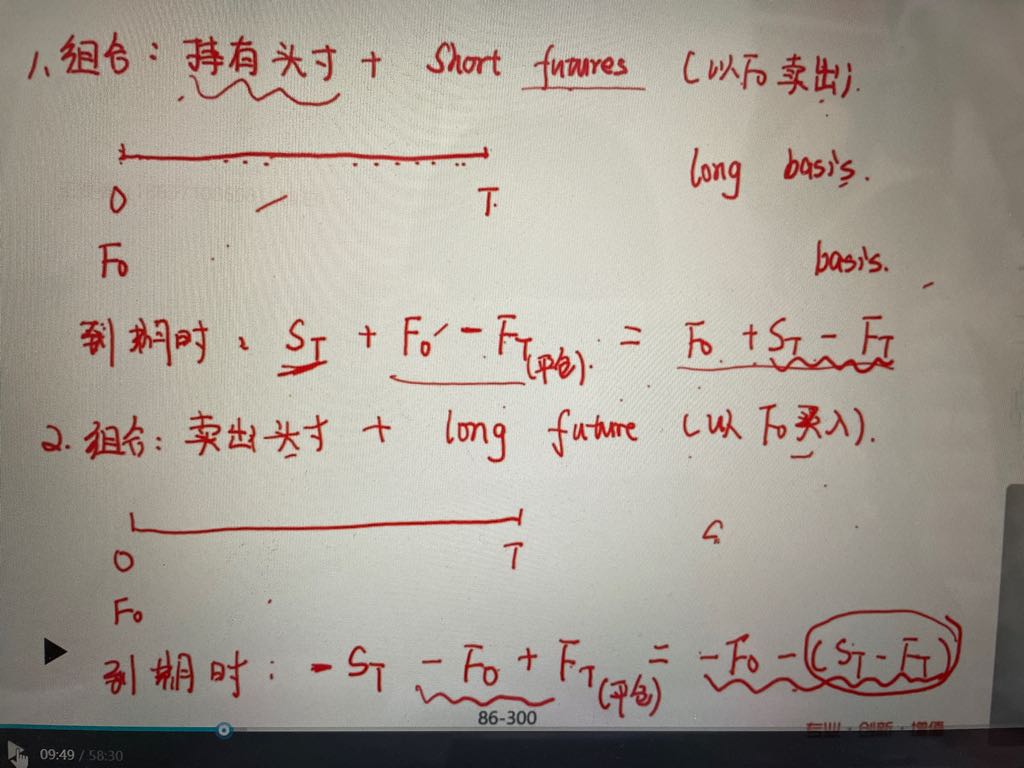 1、组合：持有头寸 + Short futures （以F0卖出）.
long basis.
0 T.
F0 basis.
到期时、ST + F0 - FT(平仓). = F0 + ST - FT
2. 组合：卖出头寸 + long future （以F0买入）.
0 T
F0
到期时： - ST - F0 + FT(平仓) = -F0 - (ST - FT)
86-300
专业·创新·增值
09:49 / 58:30